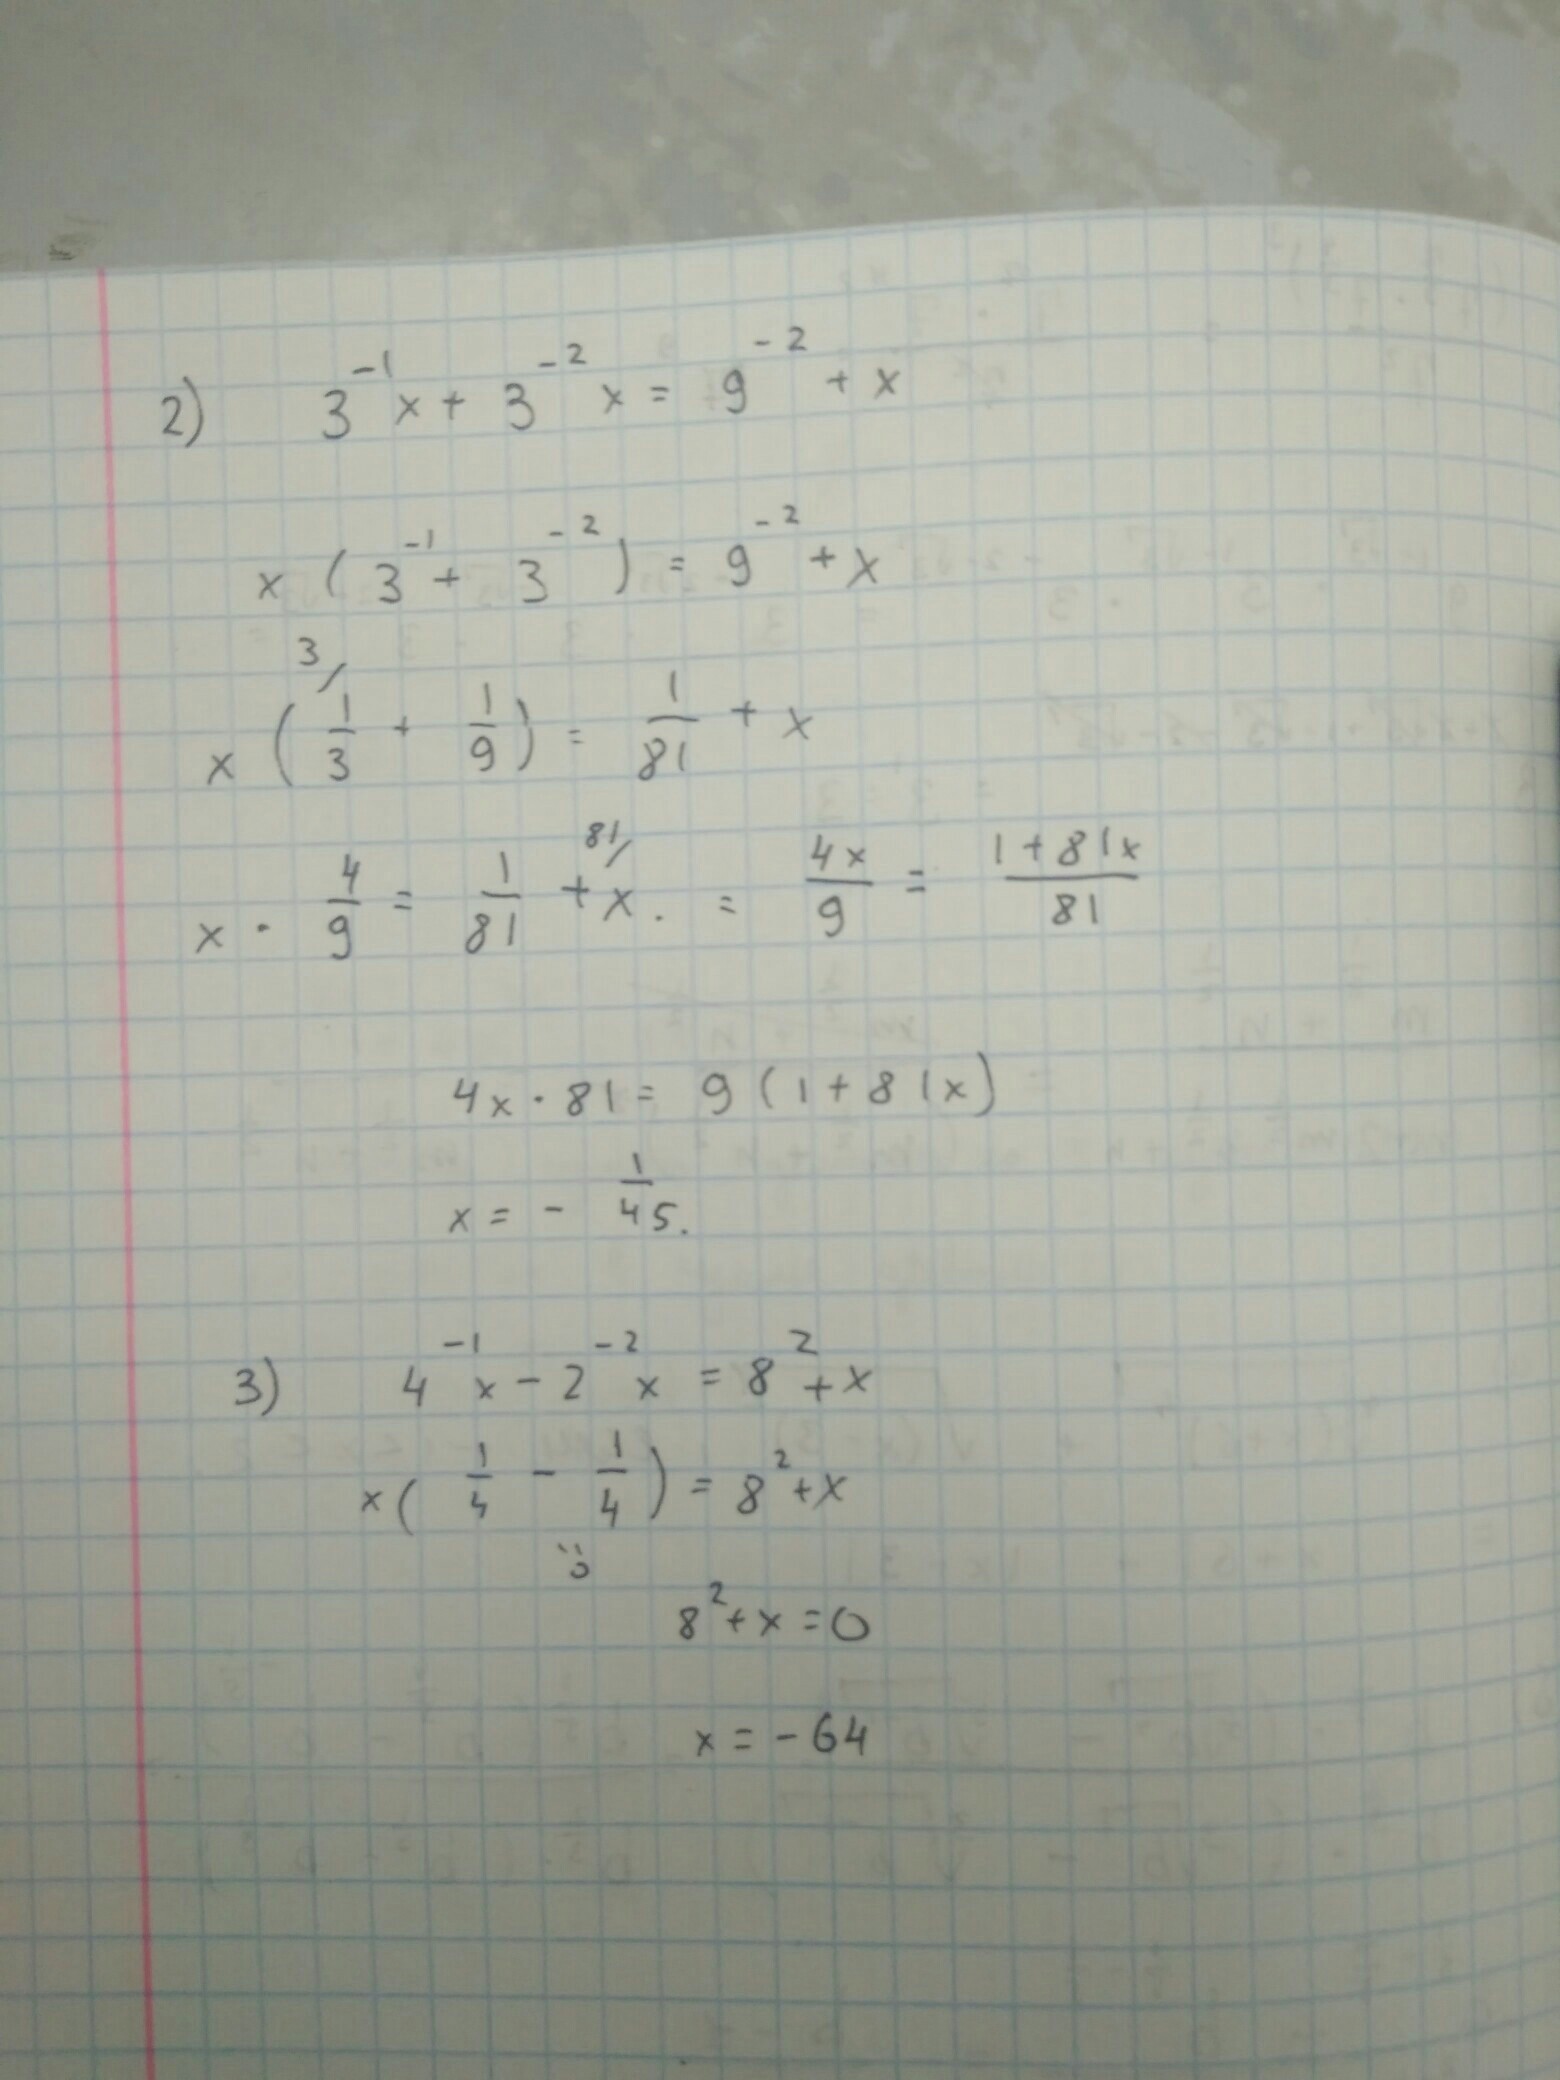 2) 3⁻¹x + 3⁻² x = 9⁻² + x
x ( 3⁻¹ + 3⁻² ) = 9⁻² + x
3/
x ( 1/3 + 1/9 ) = 1/81 + x
81/
x · 4/9 = 1/81 + x . = 4x/9 = (1 + 81x)/81
4x · 81 = 9 ( 1 + 81x )
x = - 1/45.
3) 4⁻¹x - 2⁻²x = 8² + x
x ( 1/4 - 1/4 ) = 8² + x
0
8² + x = 0
x = - 64